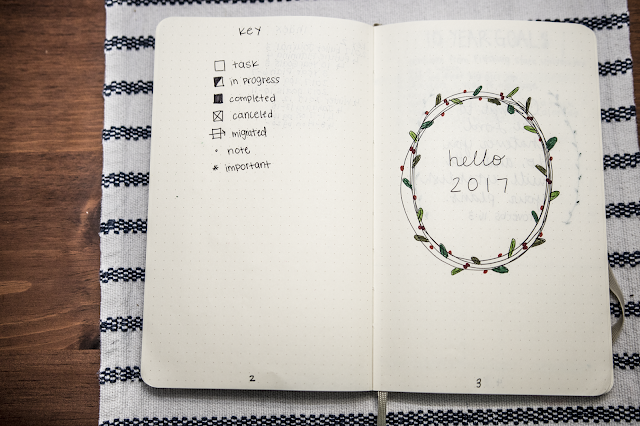 key
task
in progress
completed
canceled
migrated
note
important
2
hello
2017
3